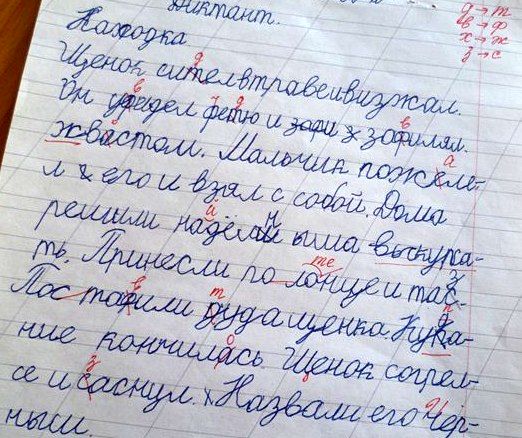 Диктант.
Находка
Щенок сителвтравеивизжал.
Он уведел фетю и зафилял
жвастом. Мальчик пожеле-
л его и взял с собой. Дома
решили на ыша выкупа-
ть. Принесли по лонце и таз.
Постафили дуда щенка. Ку-
ние кончилась. Щенок согрел-
се и саснул. Назвали его Чер-
ныш.
д → т
в → ф
х → ж
з → с